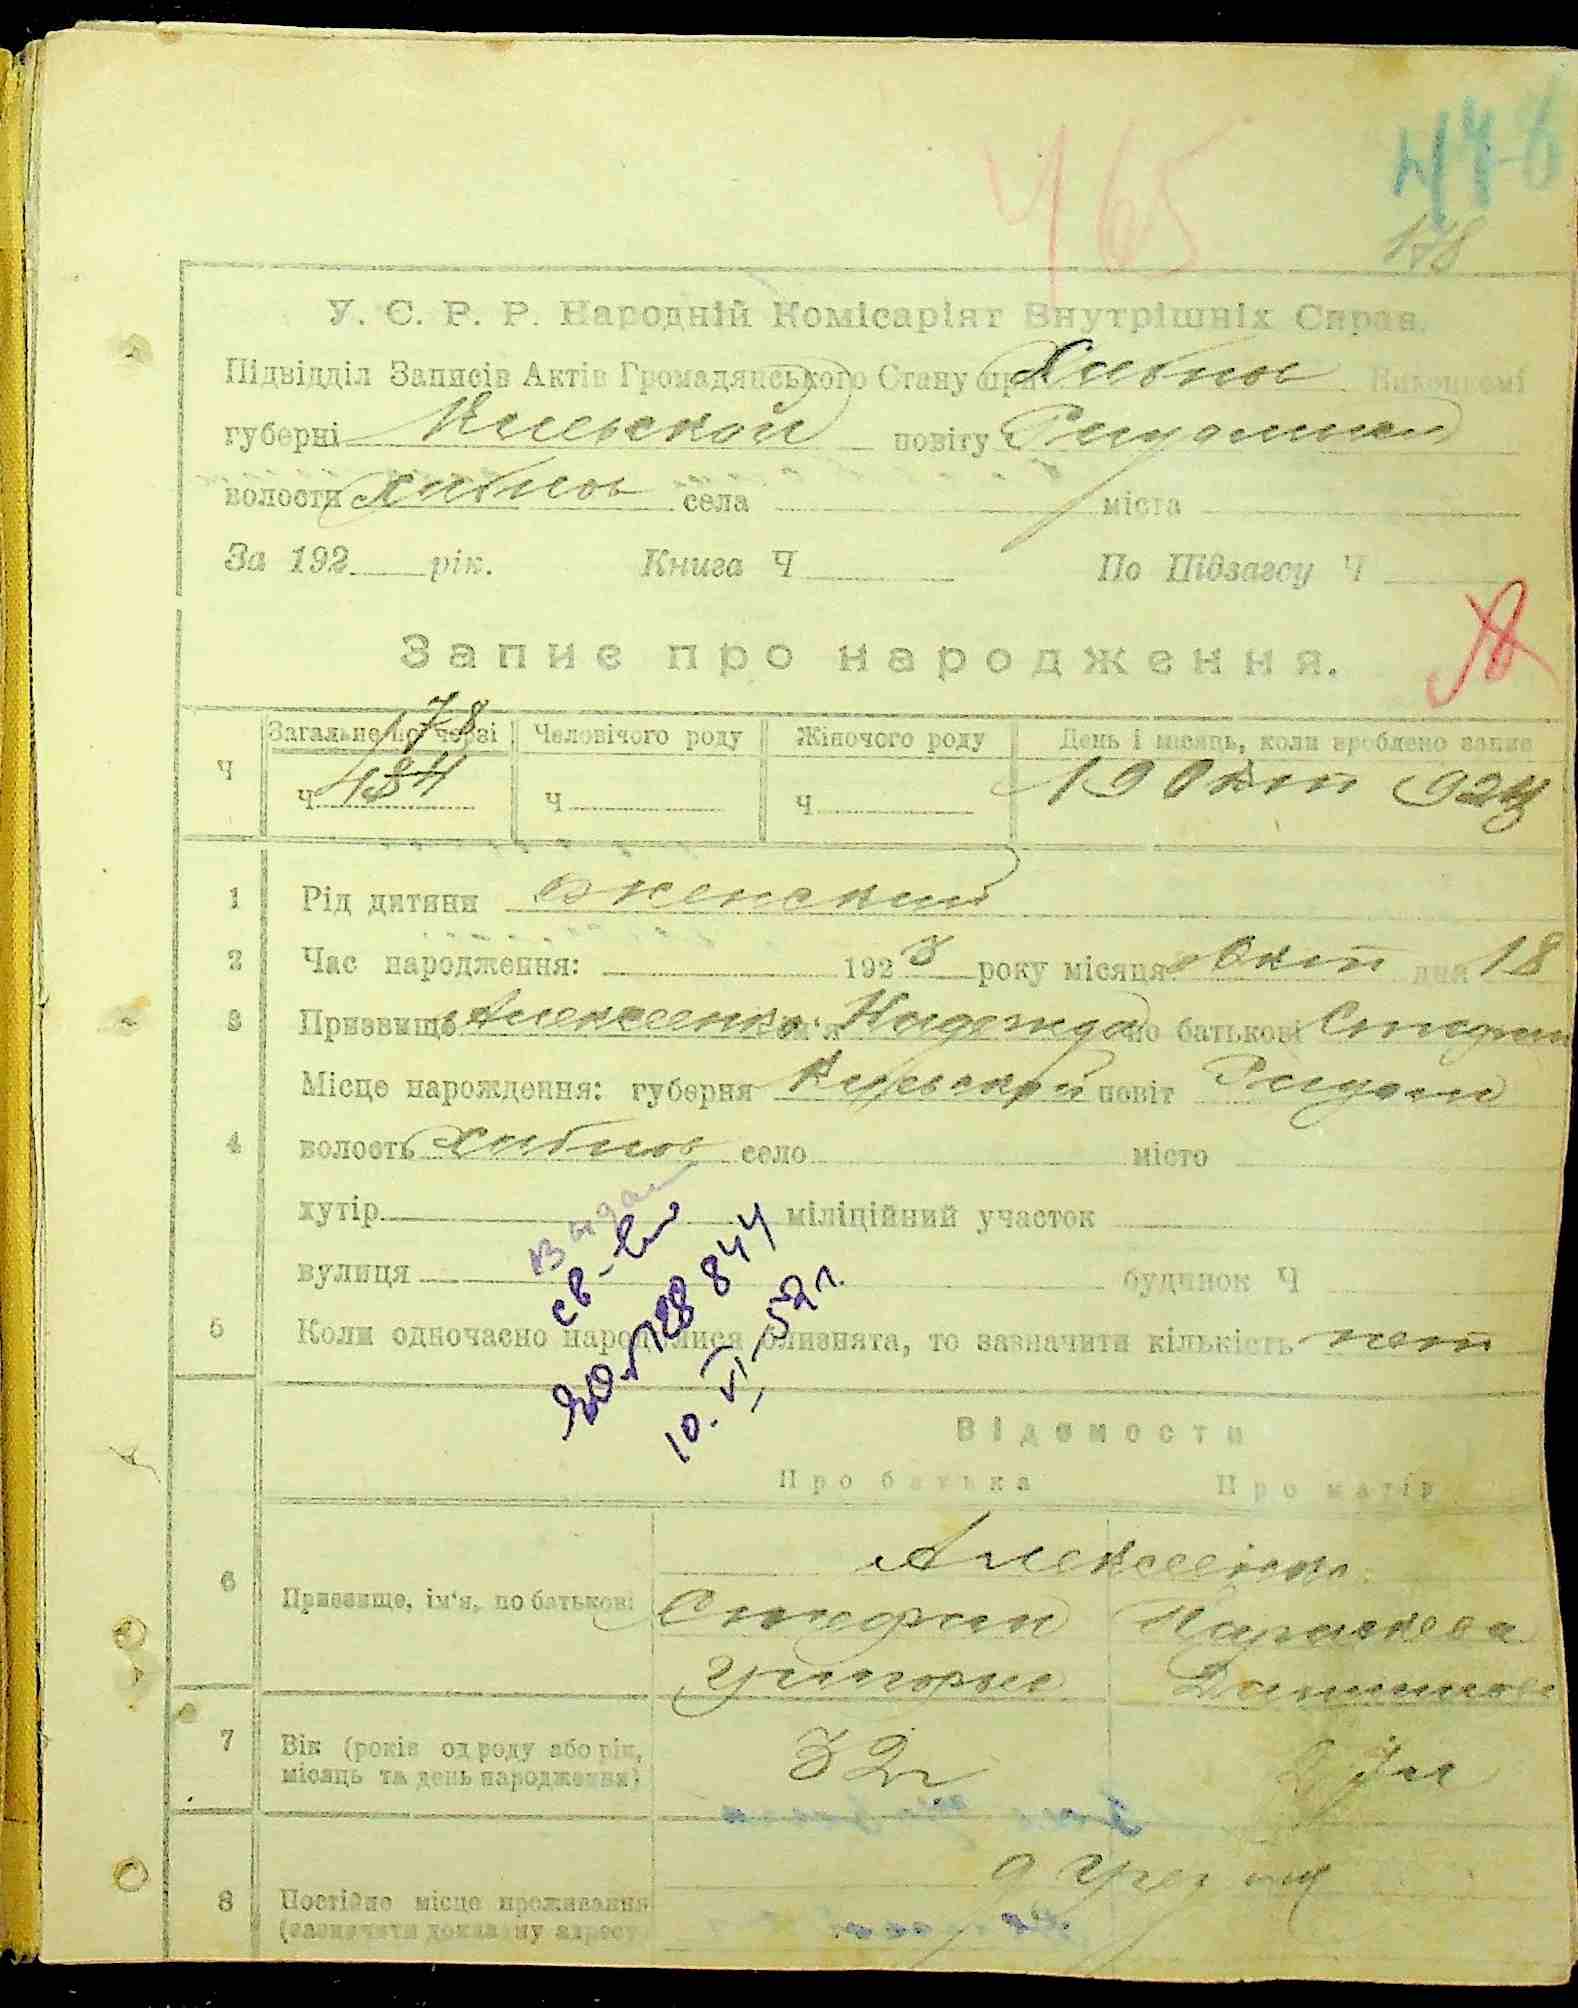 465
446
178
У. С. Р. Р. Народній Комісаріят Внутрішніх Справ.
Підвідділ Записів Актів Громадянського Стану при Хабнов Виконкомі
губерні Киевской повіту Радомыск
волости Хабнов села міста
За 192 рік. Книга Ч По Підзагсу Ч
Запис про народження.
Загальне по черзі Человічого роду Жіночого роду День і місяць, коли зроблено запис
178
Ч Ч 484 Ч Ч 19 Окт 923
1 Рід дитини женский
2 Час народження: 1923 року місяця Окт дня 18
3 Призвище Алексеенко ім'я Надежда по батькові Стефан
Місце нарождення: губерня Киевской повіт Радом
4 волость Хабнов село місто
хутір міліційний участок
вулиця будинок Ч
Выдан
св-во
128844
10.VI 52 г.
5 Коли одночасно народилися близнята, то зазначити кількість нет
Відомости
Про батька Про матір
Алексеенко
6 Призвище, ім'я, по батькові Стефан Параскева
Григорьев
7 Вік (років од роду або рік, 32 г 27 л
місяць та день народження)
8 Постійне місце проживання
(зазначити докладну адресу)